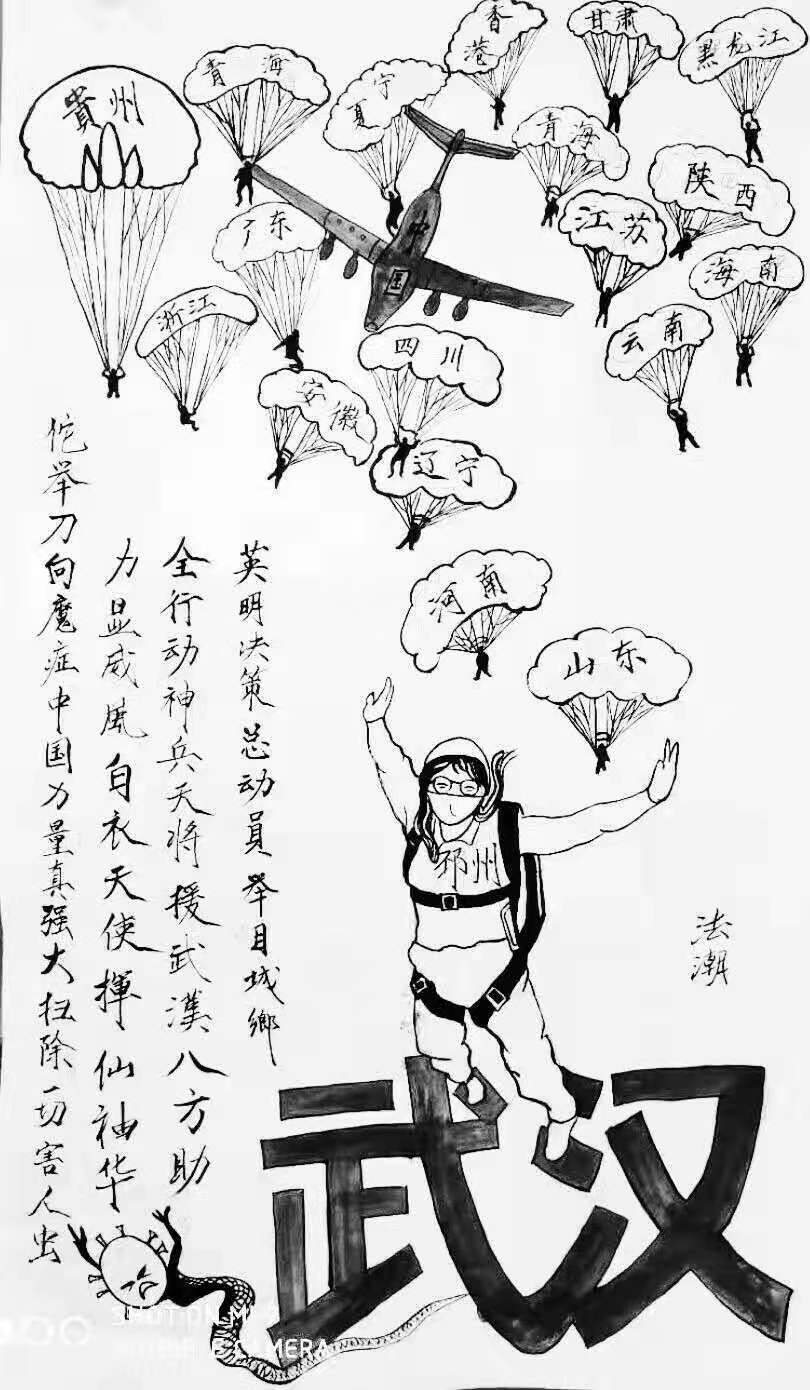 香港
甘肃
黑龙江
貴州
青海
宁夏
青海
陕西
江苏
海南
广东
中国
浙江
云南
四川
安徽
辽宁
河南
山东
英明决策总动員举目城鄉
全行动神兵天将援武漢八方助
力显威風白衣天使揮仙袖华
佗举刀向魔症中国力量真强大扫除一切害人虫
邳州
法潮
武汉
SHOT ON
CAMERA